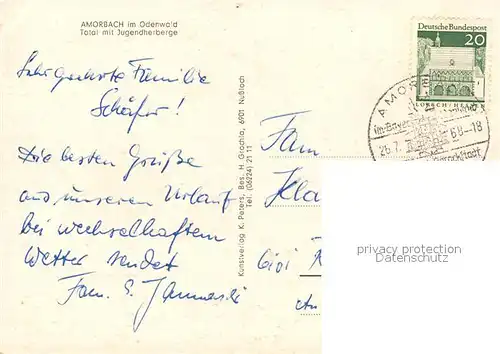 AMORBACH im Odenwald
Total mit Jugendherberge
Sehr geehrte Familie
Schäfer!
Die besten Grüße
aus unserem Urlaub
bei wechselhaftem
Wetter sendet
Fam. E.
Kunstverlag K. Peters, Bes. H. Grachla, 6901 Nußloch
Tel. (06224) 21 11
Deutsche Bundespost
20
LORSCH / HESSEN
AMOR
26.7. 68-18
Fam
Kla
privacy protection
Datenschutz